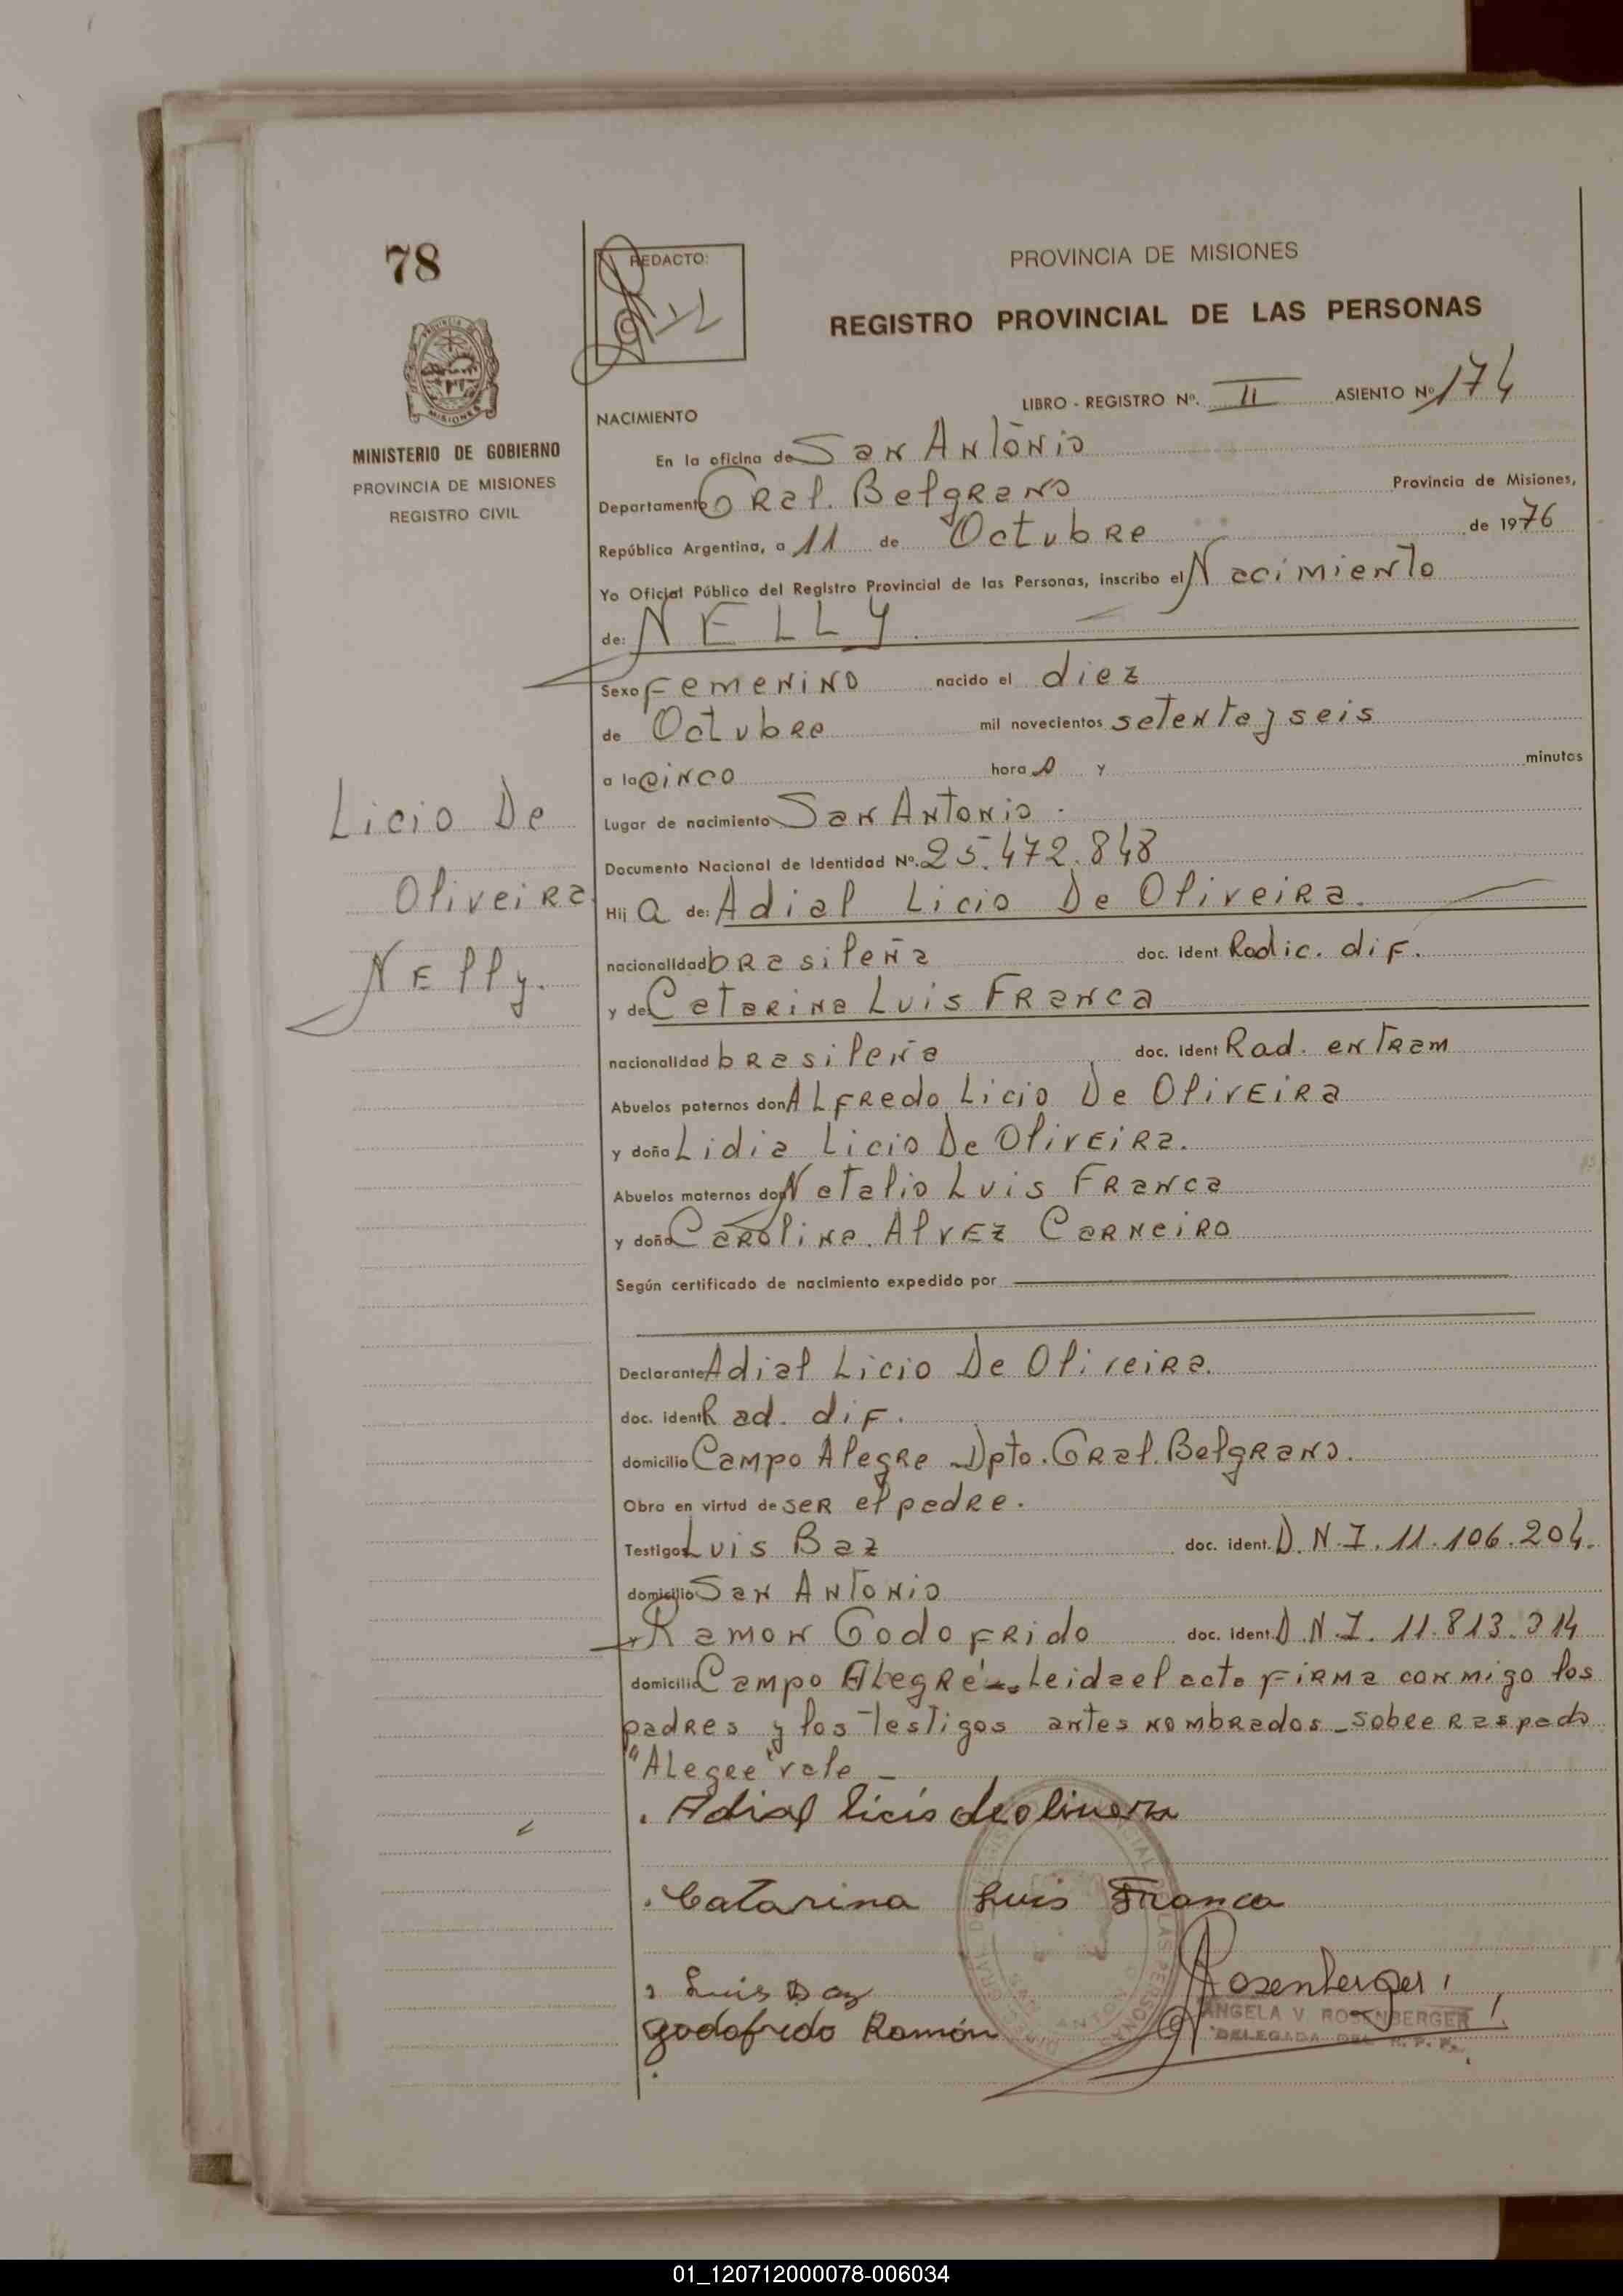 78
REDACTO:
PROVINCIA DE MISIONES
REGISTRO PROVINCIAL DE LAS PERSONAS
LIBRO - REGISTRO Nº. II ASIENTO Nº 174
NACIMIENTO
MINISTERIO DE GOBIERNO
PROVINCIA DE MISIONES
REGISTRO CIVIL
En la oficina de San Antonio
Departamento Gral. Belgrano Provincia de Misiones,
República Argentina, a 11 de Octubre de 1976
Yo Oficial Público del Registro Provincial de las Personas, inscribo el Nacimiento
de: NELLY.
Sexo Femenino nacido el diez
de Octubre mil novecientos setenta y seis
a la cinco hora s y minutos
Lugar de nacimiento San Antonio -
Documento Nacional de Identidad Nº. 25.472.848
Licio De
Oliveira
Nelly.
Hij a de: Adial Licio De Oliveira.
nacionalidad brasileña doc. ident Radic. dif.
y de Catarina Luis Franca
nacionalidad brasileña doc. ident Rad. en tram
Abuelos paternos don Alfredo Licio De Oliveira
y doña Lidia Licio De Oliveira.
Abuelos maternos don Natalio Luis Franca
y doña Carolina Alvez Carneiro
Según certificado de nacimiento expedido por
Declarante Adial Licio De Oliveira.
doc. ident Rad. dif.
domicilio Campo Alegre Dpto. Gral. Belgrano.
Obra en virtud de ser el padre.
Testigos Luis Baz doc. ident. D.N.I. 11.106.204.
domicilio San Antonio
Ramon Godofrido doc. ident. D.N.I. 11.813.314
domicilio Campo Alegre -. Leida el acta firma conmigo los
padres y los testigos antes nombrados - sobre raspado
"Alegre" vale -
Adial licio deolivera
Catarina Luis Franca
Luis
godofredo Ramón
Rosenberger
ANGELA V. ROSENBERGER
DELEGADA DEL R. P. P.
01_120712000078-006034